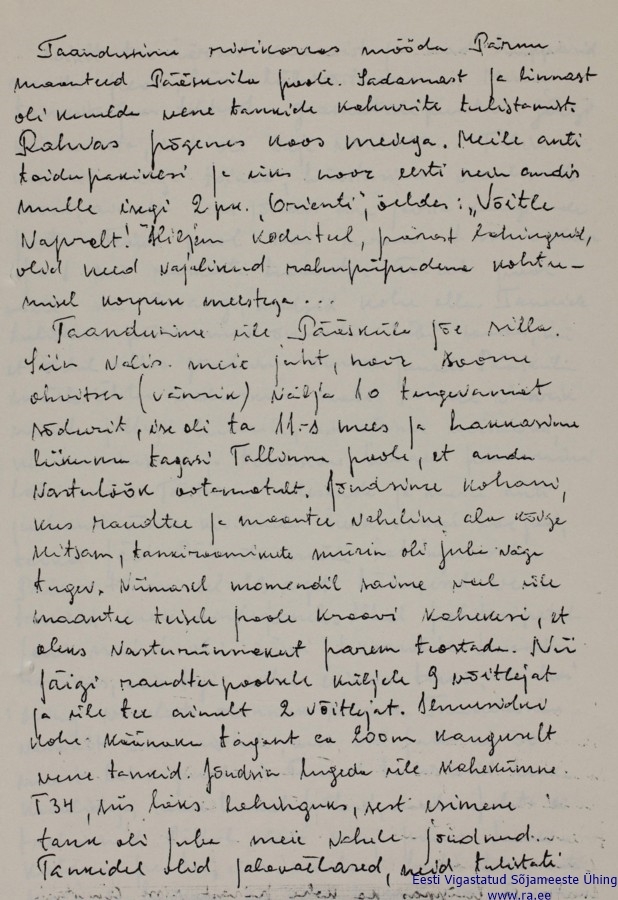 Taandusime rivikorras mööda Pärnu
maanteed Pääsküla poole. Sadamast ja linnast
oli kuulda vene tankide kahurite tulistamist.
Rahvas põgenes koos meiega. Meile anti
toidupakikesi ja üks noor eesti neiu andis
mulle isegi 2 pk. "Orienti", öeldes: "Võitle
vapralt!" Hiljem koduteel, pärast lahinguid,
olid need vajalikud rahupiipudena kohtu-
misel korpuse meestega...
Taandusime üle Pääsküla jõe silla.
Siin valis meie juht, noor soome
ohvitser (vänrik) välja 10 tugevamat
sõdurit, ise oli ta 11-s mees ja hakkasime
liikuma tagasi Tallinna poole, et anda
vastulöök ootamatult. Jõudsime kohani,
kus raudtee ja maantee vaheline ala kõige
kitsam, tankiroomikute mürin oli juba väga
tugev. Viimasel momendil saime veel üle
maantee teisele poole kraavi kahekesi, et
oleks vasturünnakut parem teostada. Nii
jäigi raudteepoolsele küljele 9 võitlejat
ja üle tee ainult 2 võitlejat. Ilmusidki
kohe käänaku tagant ca 200m kauguselt
vene tankid. Jõudsin lugeda üle kahekümne
T34, siis läks lahinguks, sest esimene
tank oli juba meie vahele jõudnud.
Tankidel olid jalaväelased, neid tulistati
Eesti Vigastatud Sõjameeste Ühing
www.ra.ee